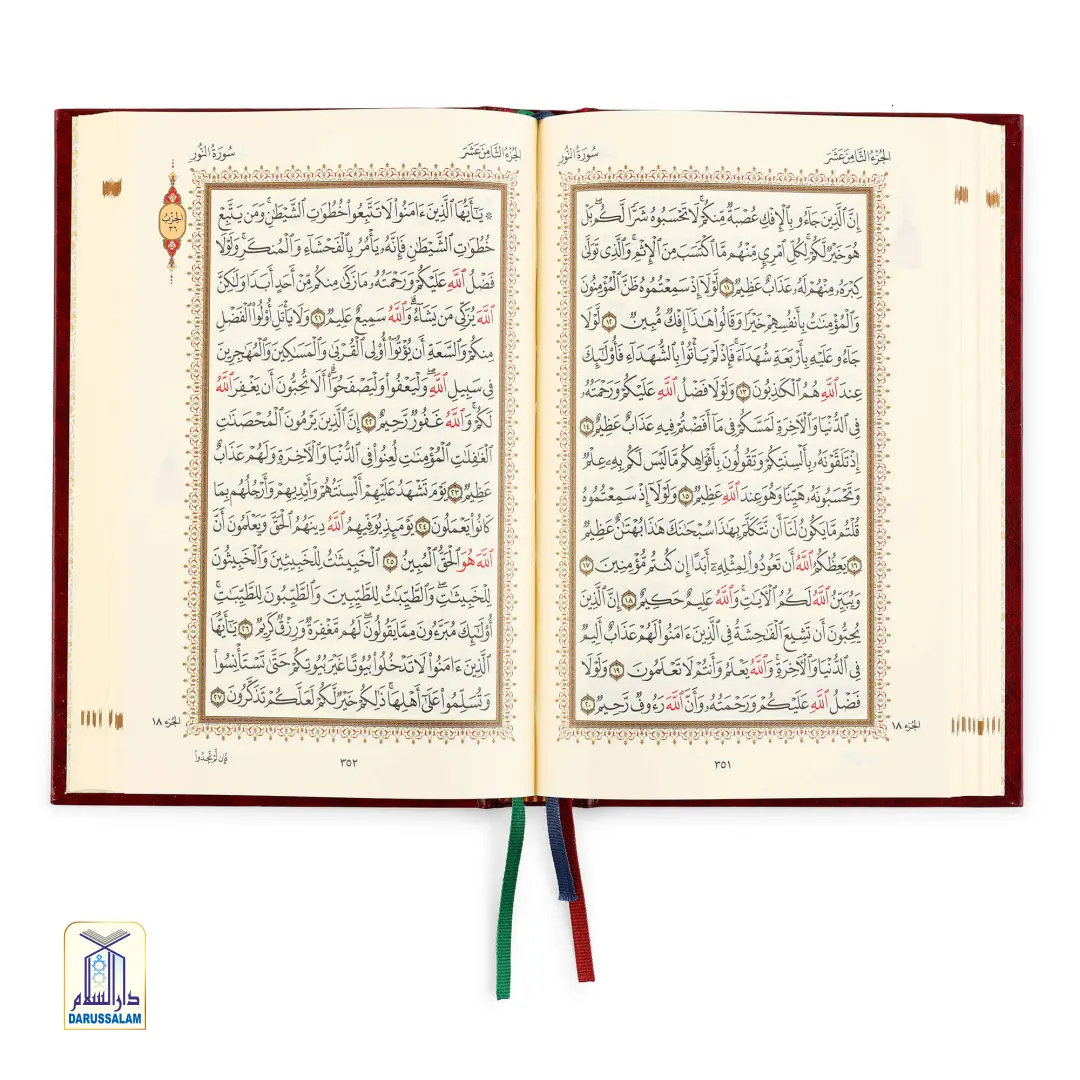 الجُزْءُ الثَّامِنَ عَشَرَ
سُورَةُ النُّورِ
إِنَّ ٱلَّذِينَ جَآءُو بِٱلْإِفْكِ عُصْبَةٌ مِّنكُمْ ۚ لَا تَحْسَبُوهُ شَرًّا لَّكُم ۖ بَلْ
هُوَ خَيْرٌ لَّكُمْ ۚ لِكُلِّ ٱمْرِئٍ مِّنْهُم مَّا ٱكْتَسَبَ مِنَ ٱلْإِثْمِ ۚ وَٱلَّذِى تَوَلَّىٰ
كِبْرَهُۥ مِنْهُمْ لَهُۥ عَذَابٌ عَظِيمٌ ١١ لَّوْلَآ إِذْ سَمِعْتُمُوهُ ظَنَّ ٱلْمُؤْمِنُونَ
وَٱلْمُؤْمِنَٰتُ بِأَنفُسِهِمْ خَيْرًا وَقَالُوا۟ هَٰذَآ إِفْكٌ مُّبِينٌ ١٢ لَّوْلَا
جَآءُو عَلَيْهِ بِأَرْبَعَةِ شُهَدَآءَ ۚ فَإِذْ لَمْ يَأْتُوا۟ بِٱلشُّهَدَآءِ فَأُو۟لَٰٓئِكَ
عِندَ ٱللَّهِ هُمُ ٱلْكَٰذِبُونَ ١٣ وَلَوْلَا فَضْلُ ٱللَّهِ عَلَيْكُمْ وَرَحْمَتُهُۥ
فِى ٱلدُّنْيَا وَٱلْءَاخِرَةِ لَمَسَّكُمْ فِى مَآ أَفَضْتُمْ فِيهِ عَذَابٌ عَظِيمٌ ١٤
إِذْ تَلَقَّوْنَهُۥ بِأَلْسِنَتِكُمْ وَتَقُولُونَ بِأَفْوَاهِكُم مَّا لَيْسَ لَكُم بِهِۦ عِلْمٌ
وَتَحْسَبُونَهُۥ هَيِّنًا وَهُوَ عِندَ ٱللَّهِ عَظِيمٌ ١٥ وَلَوْلَآ إِذْ سَمِعْتُمُوهُ
قُلْتُم مَّا يَكُونُ لَنَآ أَن نَّتَكَلَّمَ بِهَٰذَا سُبْحَٰنَكَ هَٰذَا بُهْتَٰنٌ عَظِيمٌ
١٦ يَعِظُكُمُ ٱللَّهُ أَن تَعُودُوا۟ لِمِثْلِهِۦٓ أَبَدًا إِن كُنتُم مُّؤْمِنِينَ ١٧
وَيُبَيِّنُ ٱللَّهُ لَكُمُ ٱلْءَايَٰتِ ۚ وَٱللَّهُ عَلِيمٌ حَكِيمٌ ١٨ إِنَّ ٱلَّذِينَ
يُحِبُّونَ أَن تَشِيعَ ٱلْفَٰحِشَةُ فِى ٱلَّذِينَ ءَامَنُوا۟ لَهُمْ عَذَابٌ أَلِيمٌ
فِى ٱلدُّنْيَا وَٱلْءَاخِرَةِ ۚ وَٱللَّهُ يَعْلَمُ وَأَنتُمْ لَا تَعْلَمُونَ ١٩ وَلَوْلَا
فَضْلُ ٱللَّهِ عَلَيْكُمْ وَرَحْمَتُهُۥ وَأَنَّ ٱللَّهَ رَءُوفٌ رَّحِيمٌ ٢٠
الجزء ١٨
٣٥١
الجُزْءُ الثَّامِنَ عَشَرَ
سُورَةُ النُّورِ
الحِزْبُ
٣٦
۞ يَٰٓأَيُّهَا ٱلَّذِينَ ءَامَنُوا۟ لَا تَتَّبِعُوا۟ خُطُوَٰتِ ٱلشَّيْطَٰنِ ۚ وَمَن يَتَّبِعْ
خُطُوَٰتِ ٱلشَّيْطَٰنِ فَإِنَّهُۥ يَأْمُرُ بِٱلْفَحْشَآءِ وَٱلْمُنكَرِ ۚ وَلَوْلَا
فَضْلُ ٱللَّهِ عَلَيْكُمْ وَرَحْمَتُهُۥ مَا زَكَىٰ مِنكُم مِّنْ أَحَدٍ أَبَدًا وَلَٰكِنَّ
ٱللَّهَ يُزَكِّى مَن يَشَآءُ ۗ وَٱللَّهُ سَمِيعٌ عَلِيمٌ ٢١ وَلَا يَأْتَلِ أُو۟لُوا۟ ٱلْفَضْلِ
مِنكُمْ وَٱلسَّعَةِ أَن يُؤْتُوٓا۟ أُو۟لِى ٱلْقُرْبَىٰ وَٱلْمَسَٰكِينَ وَٱلْمُهَٰجِرِينَ
فِى سَبِيلِ ٱللَّهِ ۖ وَلْيَعْفُوا۟ وَلْيَصْفَحُوٓا۟ ۗ أَلَا تُحِبُّونَ أَن يَغْفِرَ ٱللَّهُ
لَكُمْ ۗ وَٱللَّهُ غَفُورٌ رَّحِيمٌ ٢٢ إِنَّ ٱلَّذِينَ يَرْمُونَ ٱلْمُحْصَنَٰتِ
ٱلْغَٰفِلَٰتِ ٱلْمُؤْمِنَٰتِ لُعِنُوا۟ فِى ٱلدُّنْيَا وَٱلْءَاخِرَةِ وَلَهُمْ عَذَابٌ
عَظِيمٌ ٢٣ يَوْمَ تَشْهَدُ عَلَيْهِمْ أَلْسِنَتُهُمْ وَأَيْدِيهِمْ وَأَرْجُلُهُم بِمَا
كَانُوا۟ يَعْمَلُونَ ٢٤ يَوْمَئِذٍ يُوَفِّيهِمُ ٱللَّهُ دِينَهُمُ ٱلْحَقَّ وَيَعْلَمُونَ أَنَّ
ٱللَّهَ هُوَ ٱلْحَقُّ ٱلْمُبِينُ ٢٥ ٱلْخَبِيثَٰتُ لِلْخَبِيثِينَ وَٱلْخَبِيثُونَ
لِلْخَبِيثَٰتِ ۖ وَٱلطَّيِّبَٰتُ لِلطَّيِّبِينَ وَٱلطَّيِّبُونَ لِلطَّيِّبَٰتِ ۚ
أُو۟لَٰٓئِكَ مُبَرَّءُونَ مِمَّا يَقُولُونَ ۖ لَهُم مَّغْفِرَةٌ وَرِزْقٌ كَرِيمٌ ٢٦ يَٰٓأَيُّهَا
ٱلَّذِينَ ءَامَنُوا۟ لَا تَدْخُلُوا۟ بُيُوتًا غَيْرَ بُيُوتِكُمْ حَتَّىٰ تَسْتَأْنِسُوا۟
وَتُسَلِّمُوا۟ عَلَىٰٓ أَهْلِهَا ۚ ذَٰلِكُمْ خَيْرٌ لَّكُمْ لَعَلَّكُمْ تَذَكَّرُونَ ٢٧
الجزء ١٨
فَإِن لَّمْ تَجِدُوا۟
٣٥٢
دار السلام
DARUSSALAM